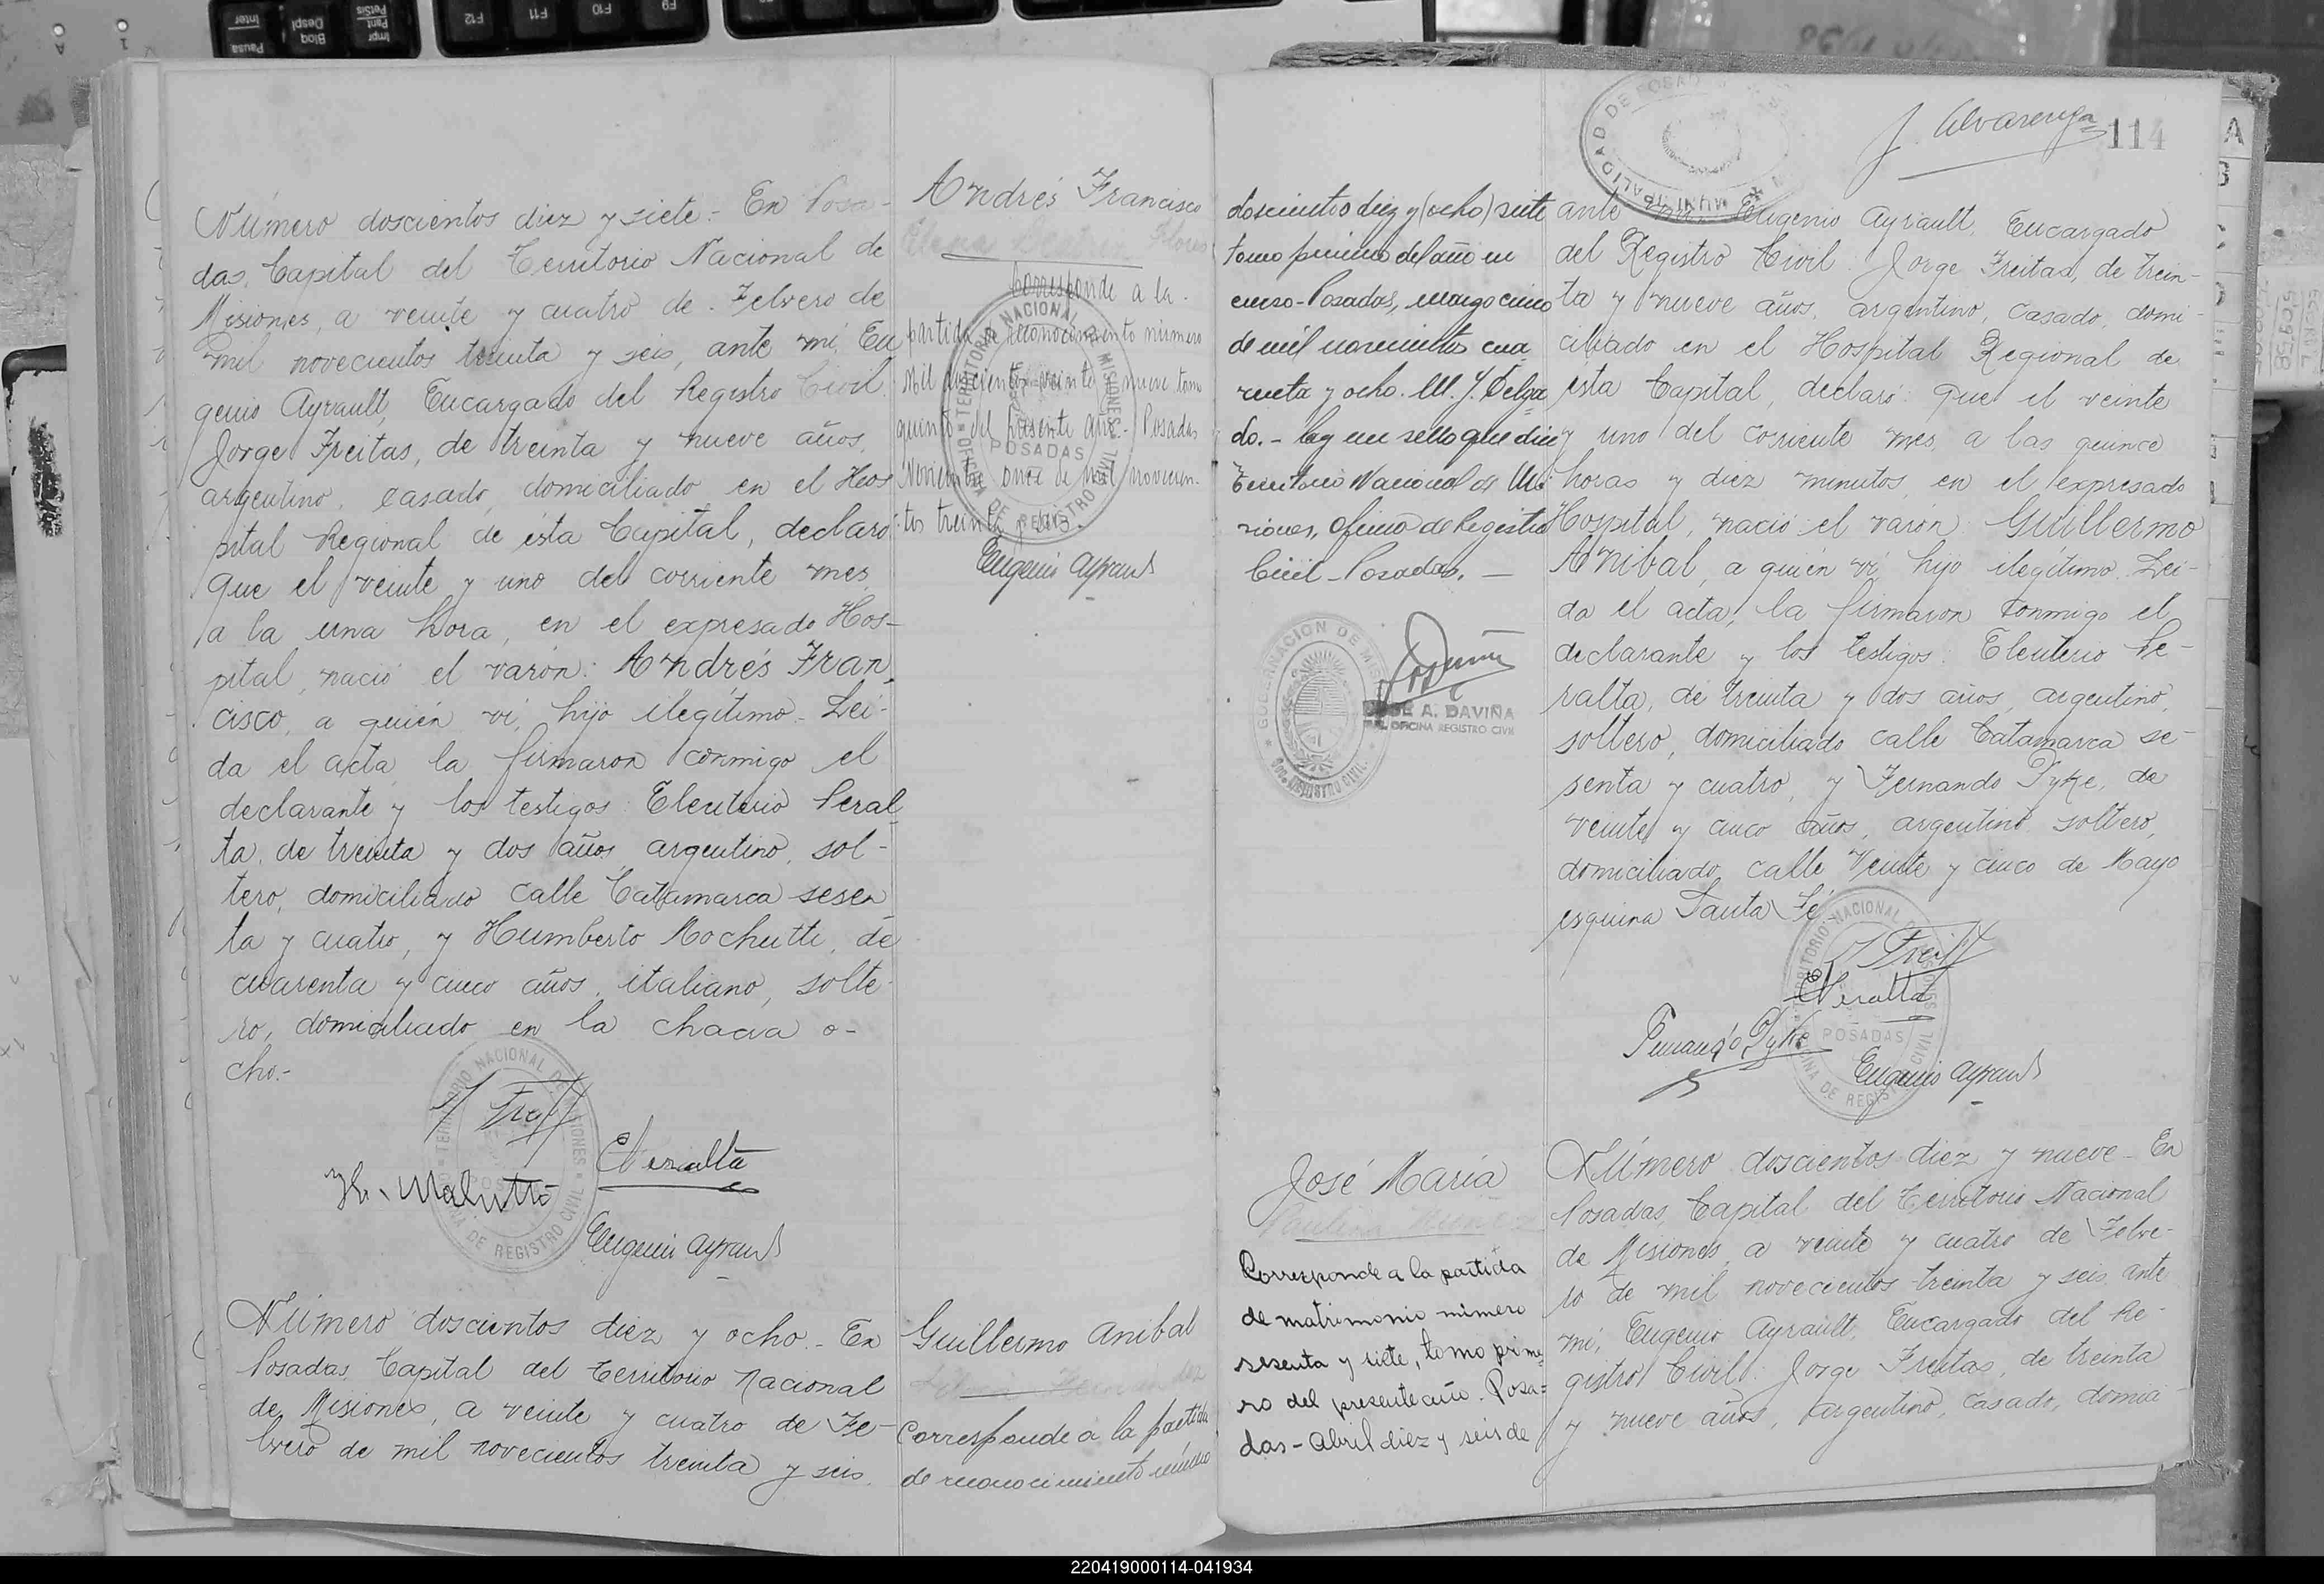 Número doscientos diez y siete.- En Posa-
das, Capital del Territorio Nacional de
Misiones, a veinte y cuatro de Febrero de
mil novecientos treinta y seis, ante mí, Eu
genio Ayrault, Encargado del Registro Civil:
Jorge Freitas, de treinta y nueve años,
argentino, casado, domiciliado en el Hos
pital Regional de ésta Capital, declaró:
que el veinte y uno del corriente mes
a la una hora, en el expresado Hos-
pital, nació el varón: Andrés Fran
cisco, a quién ví, hijo ilegítimo.- Leí-
da el acta, la firmaron conmigo el
declarante y los testigos: Eleuterio Peral
ta, de treinta y dos años, argentino, sol-
tero, domiciliado calle Catamarca sesen
ta y cuatro, y Humberto Mochutti, de
cuarenta y cinco años, italiano, solte-
ro, domiciliado en la chacra o-
cho.-
J Freit
E Peralta
H. Malutti
Eugenio Ayrault
TERRITORIO NACIONAL DE MISIONES
OFICINA DE REGISTRO CIVIL
POSADAS
Número doscientos diez y ocho.- En
Posadas, Capital del Territorio Nacional
de Misiones, a veinte y cuatro de Fe-
brero de mil novecientos treinta y seis,
Andrés Francisco
Flores
Corresponde a la
partida de reconocimiento número
mil doscientos veinte nueve tomo
quinto del presente año.- Posadas
Noviembre once de mil novecien-
tos treinta y seis.
Eugenio Ayrault
TERRITORIO NACIONAL DE MISIONES
OFICINA DE REGISTRO CIVIL
POSADAS
Guillermo Anibal
Corresponde a la partida
de reconocimiento número
doscientos diez y (ocho) siete
tomo primero del año en
curso - Posadas, marzo cinco
de mil novecientos cua
renta y ocho. M. J. Delga
do.- hay un sello que dice
Territorio Nacional de Mi
siones, Oficina de Registro
Civil - Posadas.-
GOBERNACION DE MISIONES
REGISTRO CIVIL
JOSE A. DAVIÑA
OFICINA REGISTRO CIVIL
José María
Paulina
Corresponde a la partida
de matrimonio número
sesenta y siete, tomo prime
ro del presente año. Posa=
das - Abril diez y seis de
J. Alvarenga
114
MUNICIPALIDAD DE POSADAS
ante mí, Eugenio Ayrault, Encargado
del Registro Civil: Jorge Freitas, de trein-
ta y nueve años, argentino, casado, domi-
ciliado en el Hospital Regional de
ésta Capital, declaró: que el veinte
y uno del corriente mes, a las quince
horas y diez minutos, en el expresado
Hospital, nació el varón: Guillermo
Anibal, a quién ví, hijo ilegítimo. Leí-
da el acta, la firmaron conmigo el
declarante y los testigos: Eleuterio Pe-
ralta, de treinta y dos años, argentino,
soltero, domiciliado calle Catamarca se-
senta y cuatro, y Fernando Dyke, de
veinte y cinco años, argentino soltero,
domiciliado calle Veinte y cinco de Mayo
esquina Santa Fé.-
J Freit
E Peralta
Fernando Dyke
Eugenio Ayrault
TERRITORIO NACIONAL DE MISIONES
OFICINA DE REGISTRO CIVIL
POSADAS
Número doscientos diez y nueve.- En
Posadas, Capital del Territorio Nacional
de Misiones, a veinte y cuatro de Febre-
ro de mil novecientos treinta y seis, ante
mí, Eugenio Ayrault, Encargado del Re-
gistro Civil: Jorge Freitas, de treinta
y nueve años, argentino, casado, domici
220419000114-041934